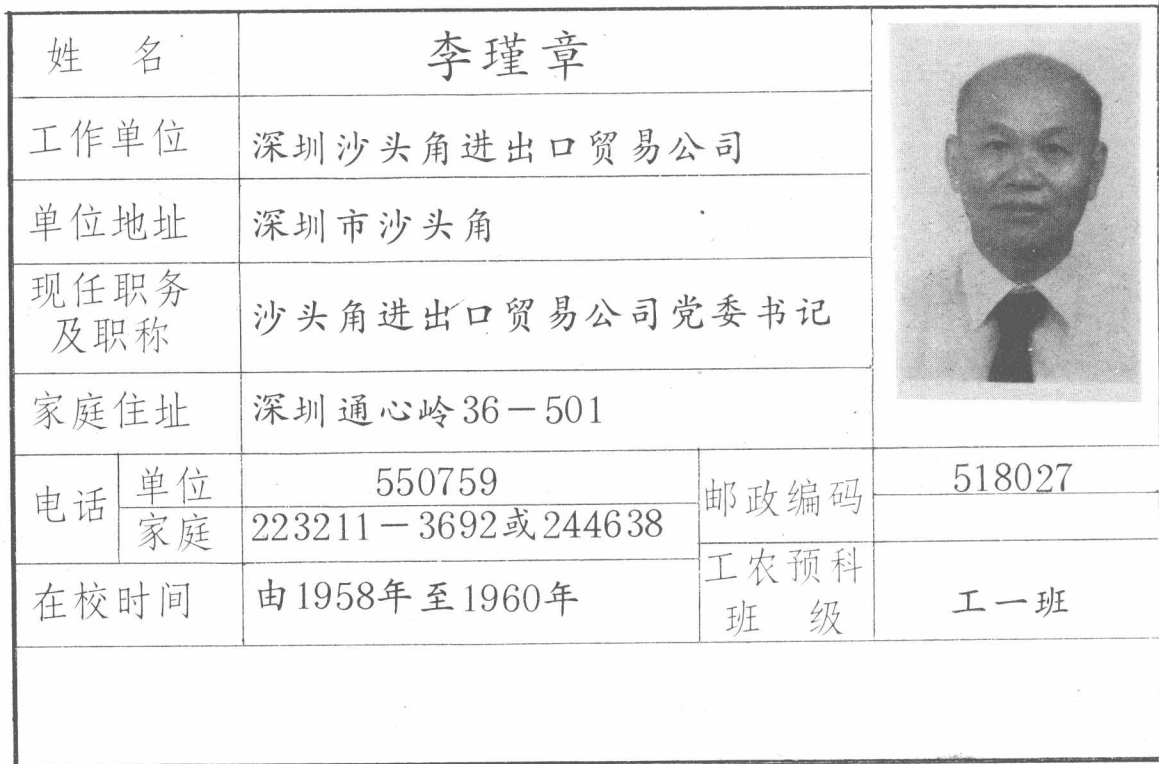 姓 名 李瑾章
工作单位 深圳沙头角进出口贸易公司
单位地址 深圳市沙头角
现任职务
及职称 沙头角进出口贸易公司党委书记
家庭住址 深圳通心岭36－501
电话 单位 550759 邮政编码 518027
家庭 223211－3692或244638
在校时间 由1958年至1960年 工农预科
班 级 工一班